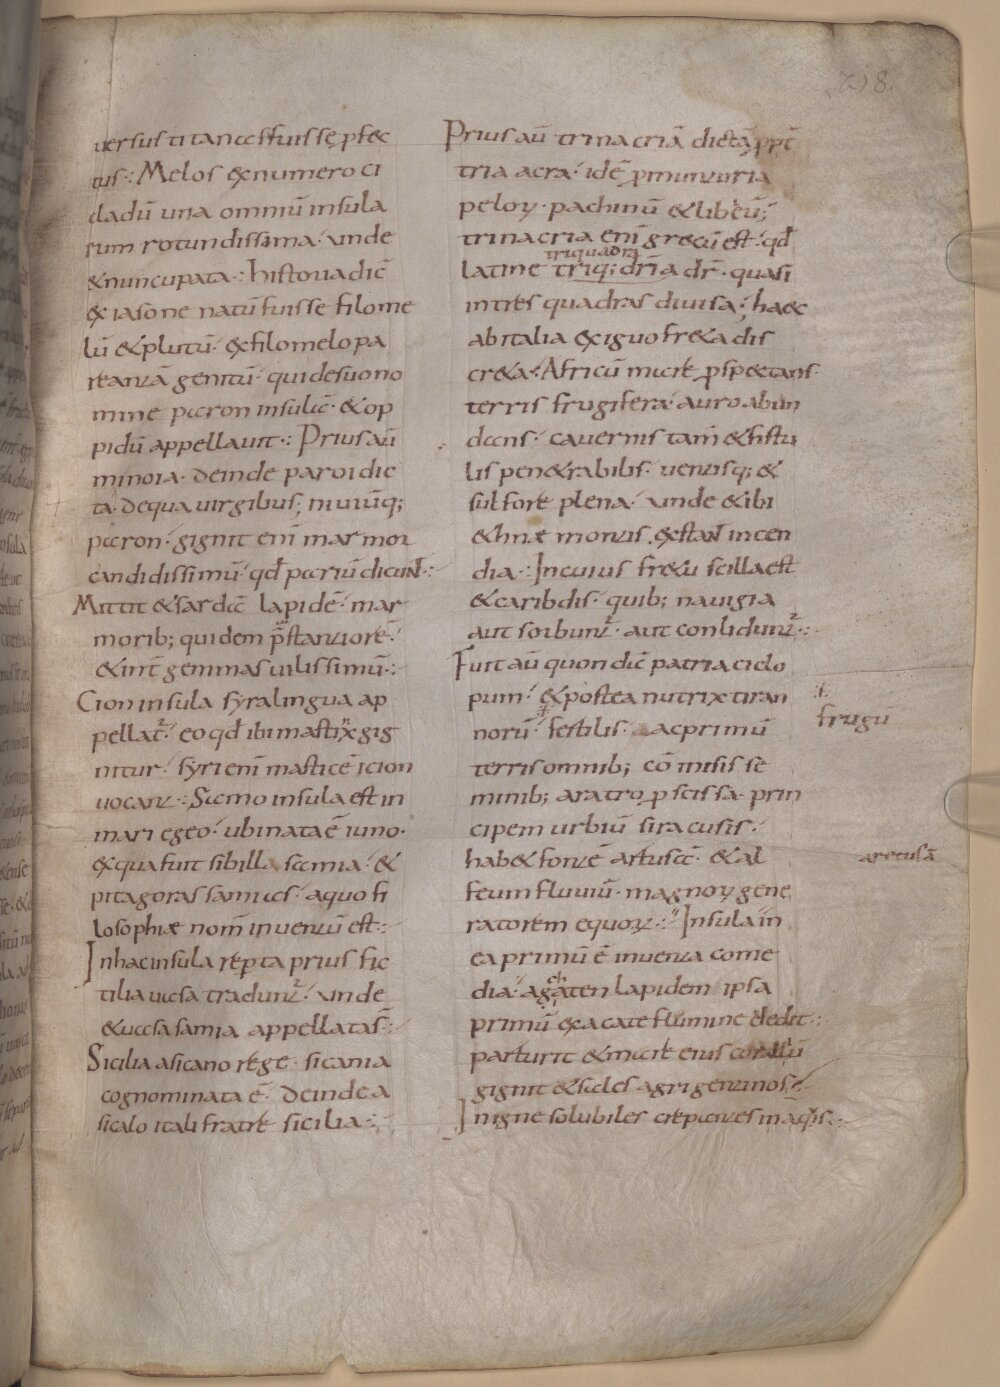 218.
uersus titanas fuisse p̱fec
tus:· Melos ex numero ci
cladū una omniū insula
rum rotundissima· unde
& nuncupata:· historia dic̄
ex iasone natū fuisse filome
lū & plutū· ex filomelo pa
reantā genitū· qui de suo no
mine paron insulā· & op
pidū appellauit:· Prius aū
minoia· deinde paroi dic
ta· de qua uirgilius; niueūq;
paron· gignit enī marmor
candidissimū· qđ pariū dicunt:·
Mittit & sardā lapidē· mar
morib; quidem p̄stantiorē·
& int̄ gemmas uilissimū:·
Cion insula syra lingua ap
pellat̄· eo qđ ibi mastix gig
nitur· syri enī masticē icion
uocant:· Samo insula est in
mari egeo· ubi nata ē iuno·
ex qua fuit sibilla samia· &
pitagoras samius· a quo fi
losophiæ nom̄ inuentū est:·
In hac insula rep̱ta prius fic
tilia uasa tradunt̄· unde
& uasa samia appellatas̄:·
Sicilia a sicano rege· sicania
cognominata ē· deinde a
sicalo itali fratre sicilia:·
Prius aū trinacriā dictā pp̄t
tria acra· idē p̱munturia
peloṛ· pachinū & libeū;
trinacria enī grecū est· qđ
triquadra
latine triq; dr̄ia dr̄· quasi
in tres quadras diuisa; haec
ab italia exiguo fr&a dis
cr&a· Africū mare p̱spectans·
terris frugifera· auro abun
dans· cauernis tam̄ & fistu
lis pen&rabilis· uentisq; &
sulfore plena· unde & ibi
& hnæ montis exstant incen
dia:· In cuius fr&u scilla est
& caribdis· quib; nauigia
aut sorbunt̄· aut conlidunt̄:·
Fuit aū quondā patria ciclo
pum· & postea nutrix tiran
norū· fertilis· ac primū
frugū
terris omnib; cōmisis se
minib; aratro p̱scissa· prin
cipem urbiū siracusis·
hab& fontē artusā· & al
aretusā
feum fluuiū· magnoꝝ gene
ratorem equoꝝ:· Insula in
ea primū ē inuenta come
dia· agaten lapidem ipsa
ch
primū ex acate flumine dedit:·
parturit & mare eius corallū
gignit & sales agrigentinos·
In igne solubiles crepitantes in aq̄is:·